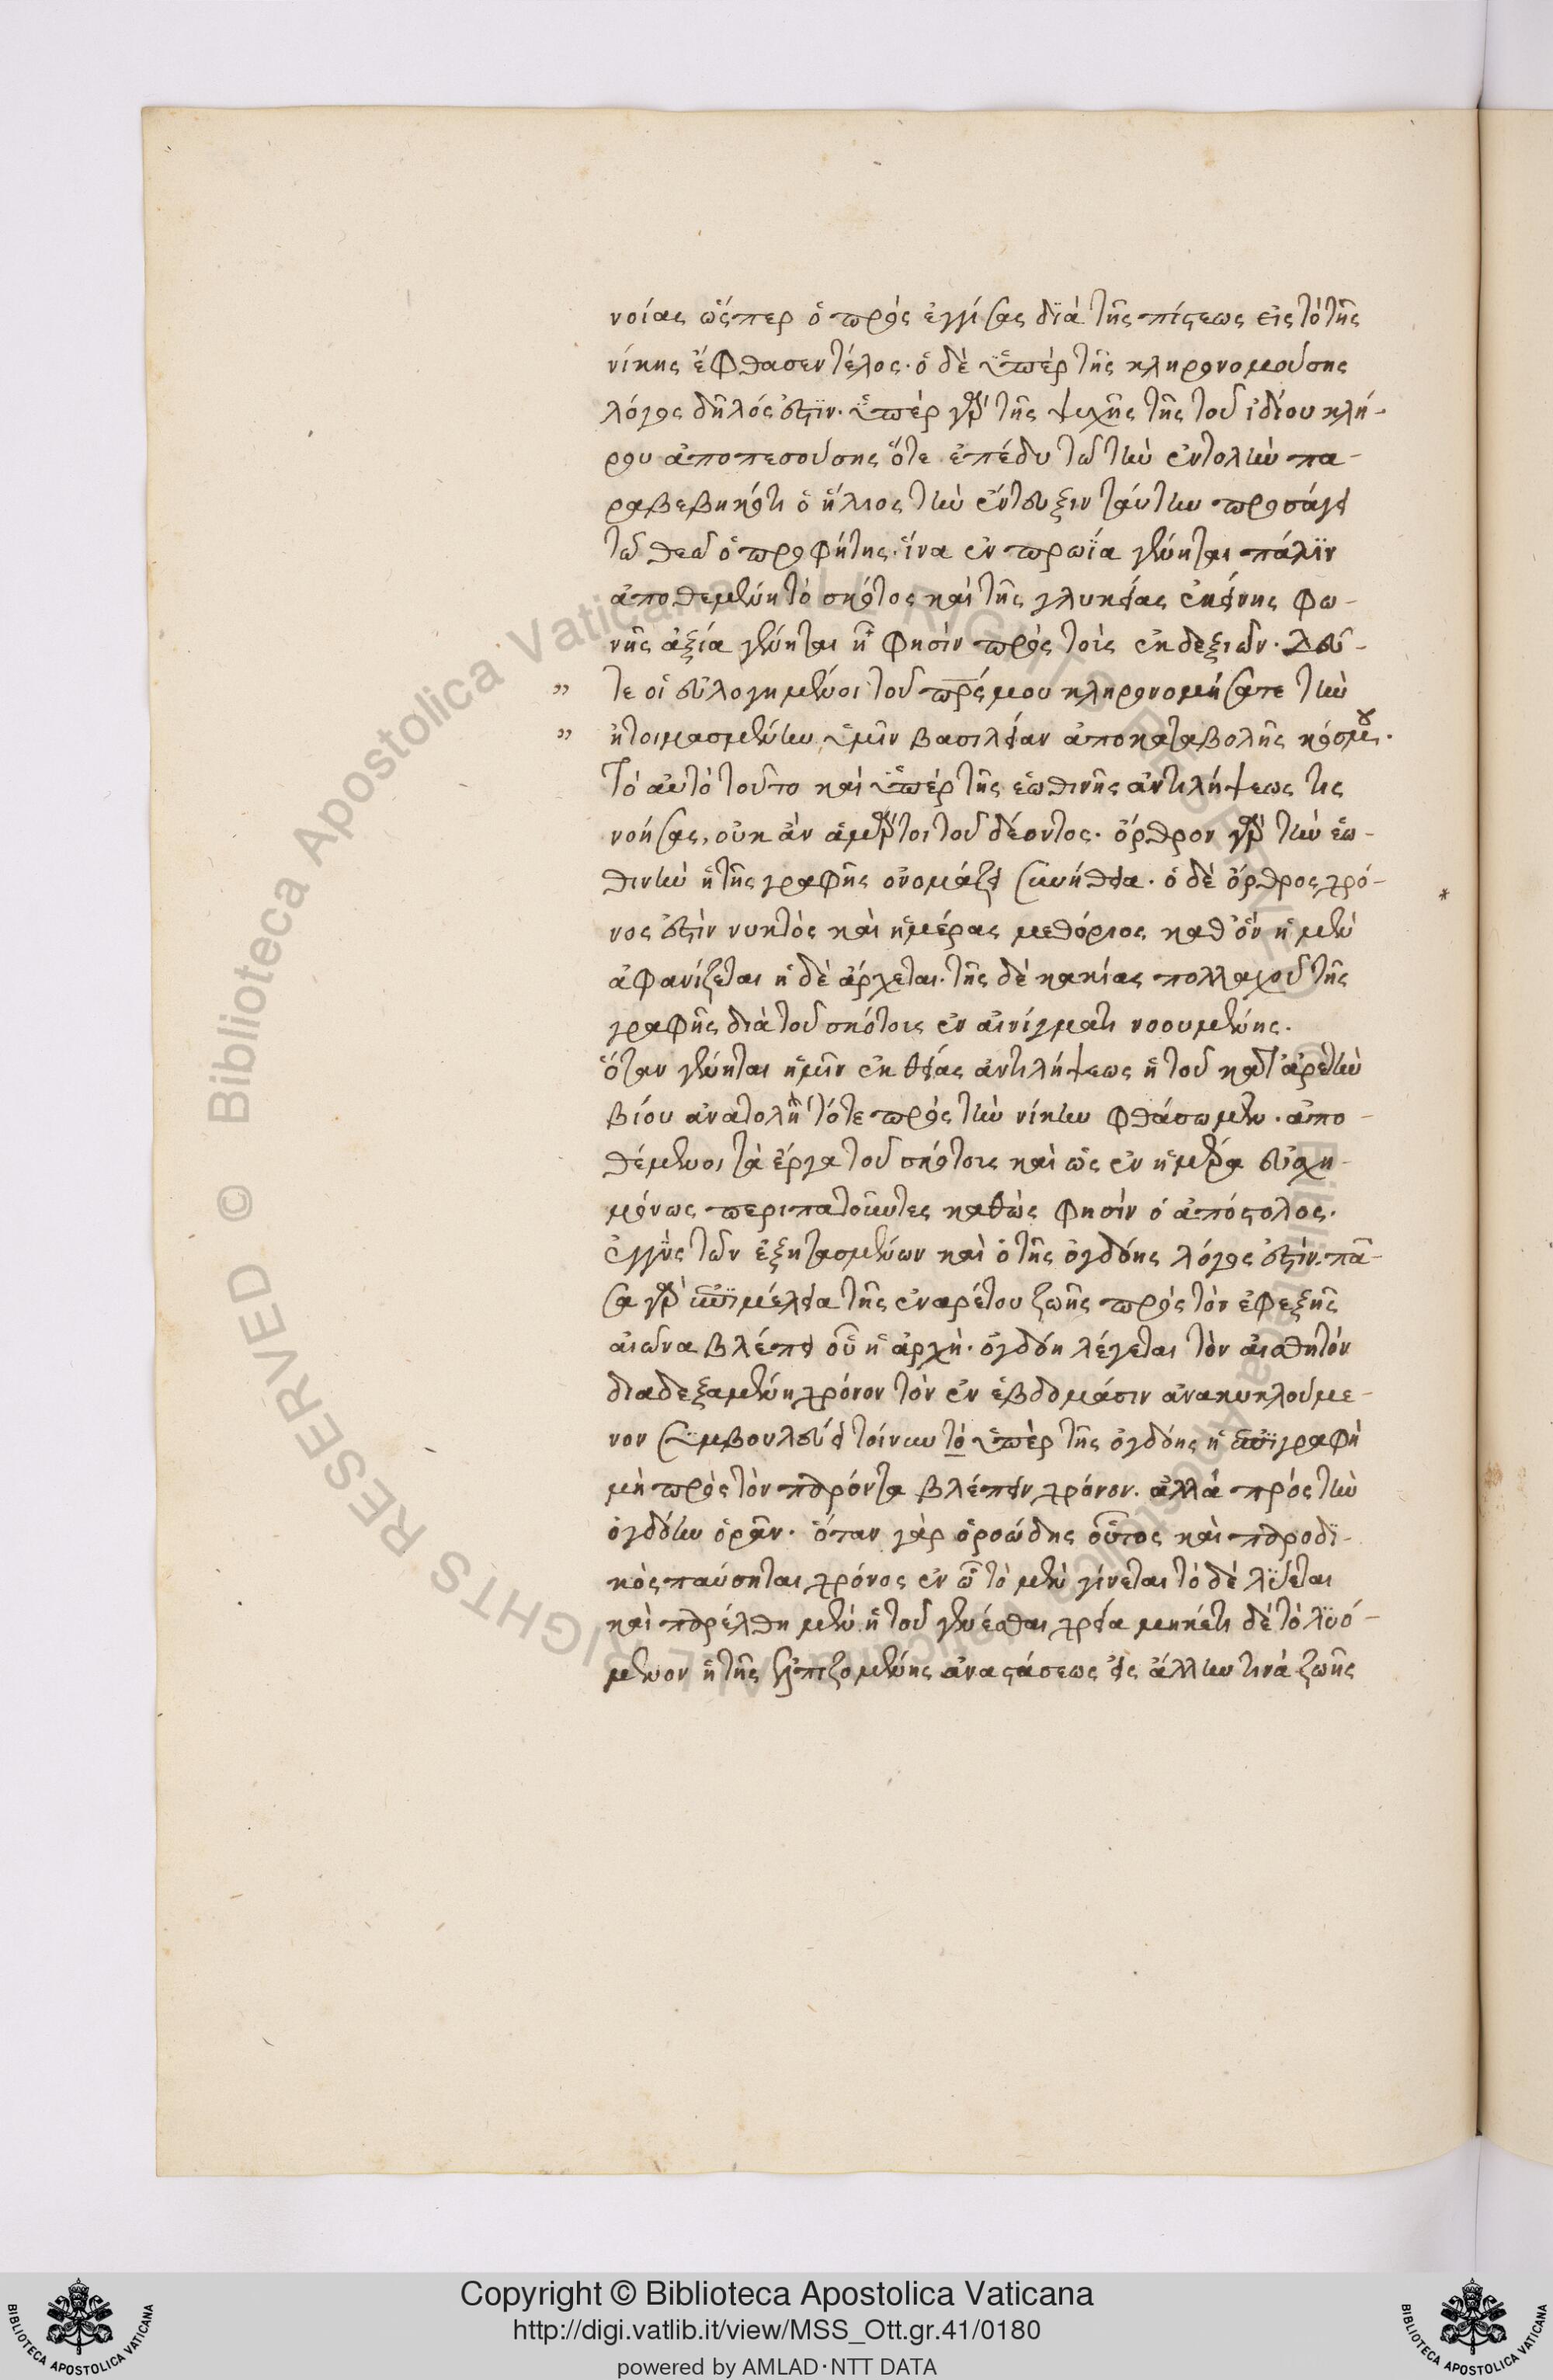 νοίας ὥσπερ ὁ πρὸς ἐγγίσας διὰ τῆς πίστεως εἰς τὸ τῆς
νίκης ἔφθασεν τέλος· ὁ δὲ ὑπὲρ τῆς κληρονομούσης
λόγος δῆλός ἐστιν· ὑπὲρ γὰρ τῆς ψυχῆς τῆς τοῦ ἰδίου κλή-
ρου ἀποπεσούσης ὅτε ἐπέδυ τῶ τὴν ἐντολὴν πα-
ραβεβηκότι ὁ ἥλιος τὴν ἔντευξιν ταύτην προσάγει
τῶ θεῶ ὁ προφήτης· ἵνα ἐν πρωΐα γένηται πάλιν
ἀποθεμένη τὸ σκότος καὶ τῆς γλυκείας ἐκείνης φω-
νῆς ἀξία γένηται ἥ φησὶν πρὸς τοὶς ἐκ δεξιῶν· Δεῦ-
„ τε οἱ εὐλογημένοι τοῦ πρς μου κληρονομήσατε τὴν
„ ἡτοιμασμένην ὑμῖν βασιλείαν ἀπο καταβολῆς κόσμου·
Τὸ αὐτὸ τοῦτο καὶ ὑπὲρ τῆς ἑωθινῆς ἀντιλήψεως τις
νοήσας, οὐκ ἂν ἁμάρτοι τοῦ δέοντος· ὄρθρον γὰρ τὴν ἑω-
θινὴν ἡ τῆς γραφῆς ὀνομάζει συνήθεια· ὁ δὲ ὄρθρος χρό-
νος ἐστὶν νυκτὸς καὶ ἡμέρας μεθόριος καθ' ὃν ἡ μὲν
ἀφανίζεται ἡ δὲ ἄρχεται· τῆς δὲ κακίας πολλαχοῦ τῆς
γραφῆς διὰ τοῦ σκότους ἐν αἰνίγματι νοουμένης·
ὅταν γένηται ἡμῖν ἐκ θείας ἀντιλήψεως ἡ τοῦ κατ' ἀρετὴν
βίου ἀνατολὴ τότε πρὸς τὴν νίκην φθάσωμεν· ἀπο-
θέμενοι τὰ ἔργα τοῦ σκότους καὶ ὡς ἐν ἡμέρα εὐσχη-
μόνως περιπατοῦντες καθὼς φησὶν ὁ ἀπόστολος·
Ἐγγὺς τῶν ἐξητασμένων καὶ ὁ τῆς ὀγδόης λόγος ἐστίν· πᾶ-
σα γὰρ ἐπιμέλεια τῆς ἐναρέτου ζωῆς πρὸς τὸν ἐφεξῆς
αἰῶνα βλέπει οὗ ἡ ἀρχὴ· ὀγδόη λέγεται τὸν αἰσθητὸν
διαδεξαμένη χρόνον τὸν ἐν ἑβδομάσιν ἀνακυκλούμε-
νον συμβουλεύει τοίνυν τὸ ὑπὲρ τῆς ὀγδόης ἡ ἐπιγραφὴ
μὴ πρὸς τὸν παρόντα βλέπειν χρόνον· ἀλλὰ πρὸς τὴν
ὀγδόην ὁρᾶν· ὅταν γὰρ ὁ ῥοώδης οὗτος καὶ παροδι-
κὸς παύσηται χρόνος ἐν ᾧ τὸ μὲν γίνεται τὸ δὲ λύεται
καὶ παρέλθη μὲν ἡ τοῦ γενέσθαι χρεία μηκέτι δὲ τὸ λυό-
μενον ἡ τῆς ἐλπιζομένης ἀναστάσεως εἰς ἄλλην τινὰ ζωῆς
© Biblioteca Apostolica Vaticana ALL RIGHTS RESERVED
© Biblioteca Apostolica Vaticana ALL RIGHTS RESERVED
Copyright © Biblioteca Apostolica Vaticana
http://digi.vatlib.it/view/MSS_Ott.gr.41/0180
powered by AMLAD·NTT DATA
BIBLIOTECA APOSTOLICA VATICANA
BIBLIOTECA APOSTOLICA VATICANA